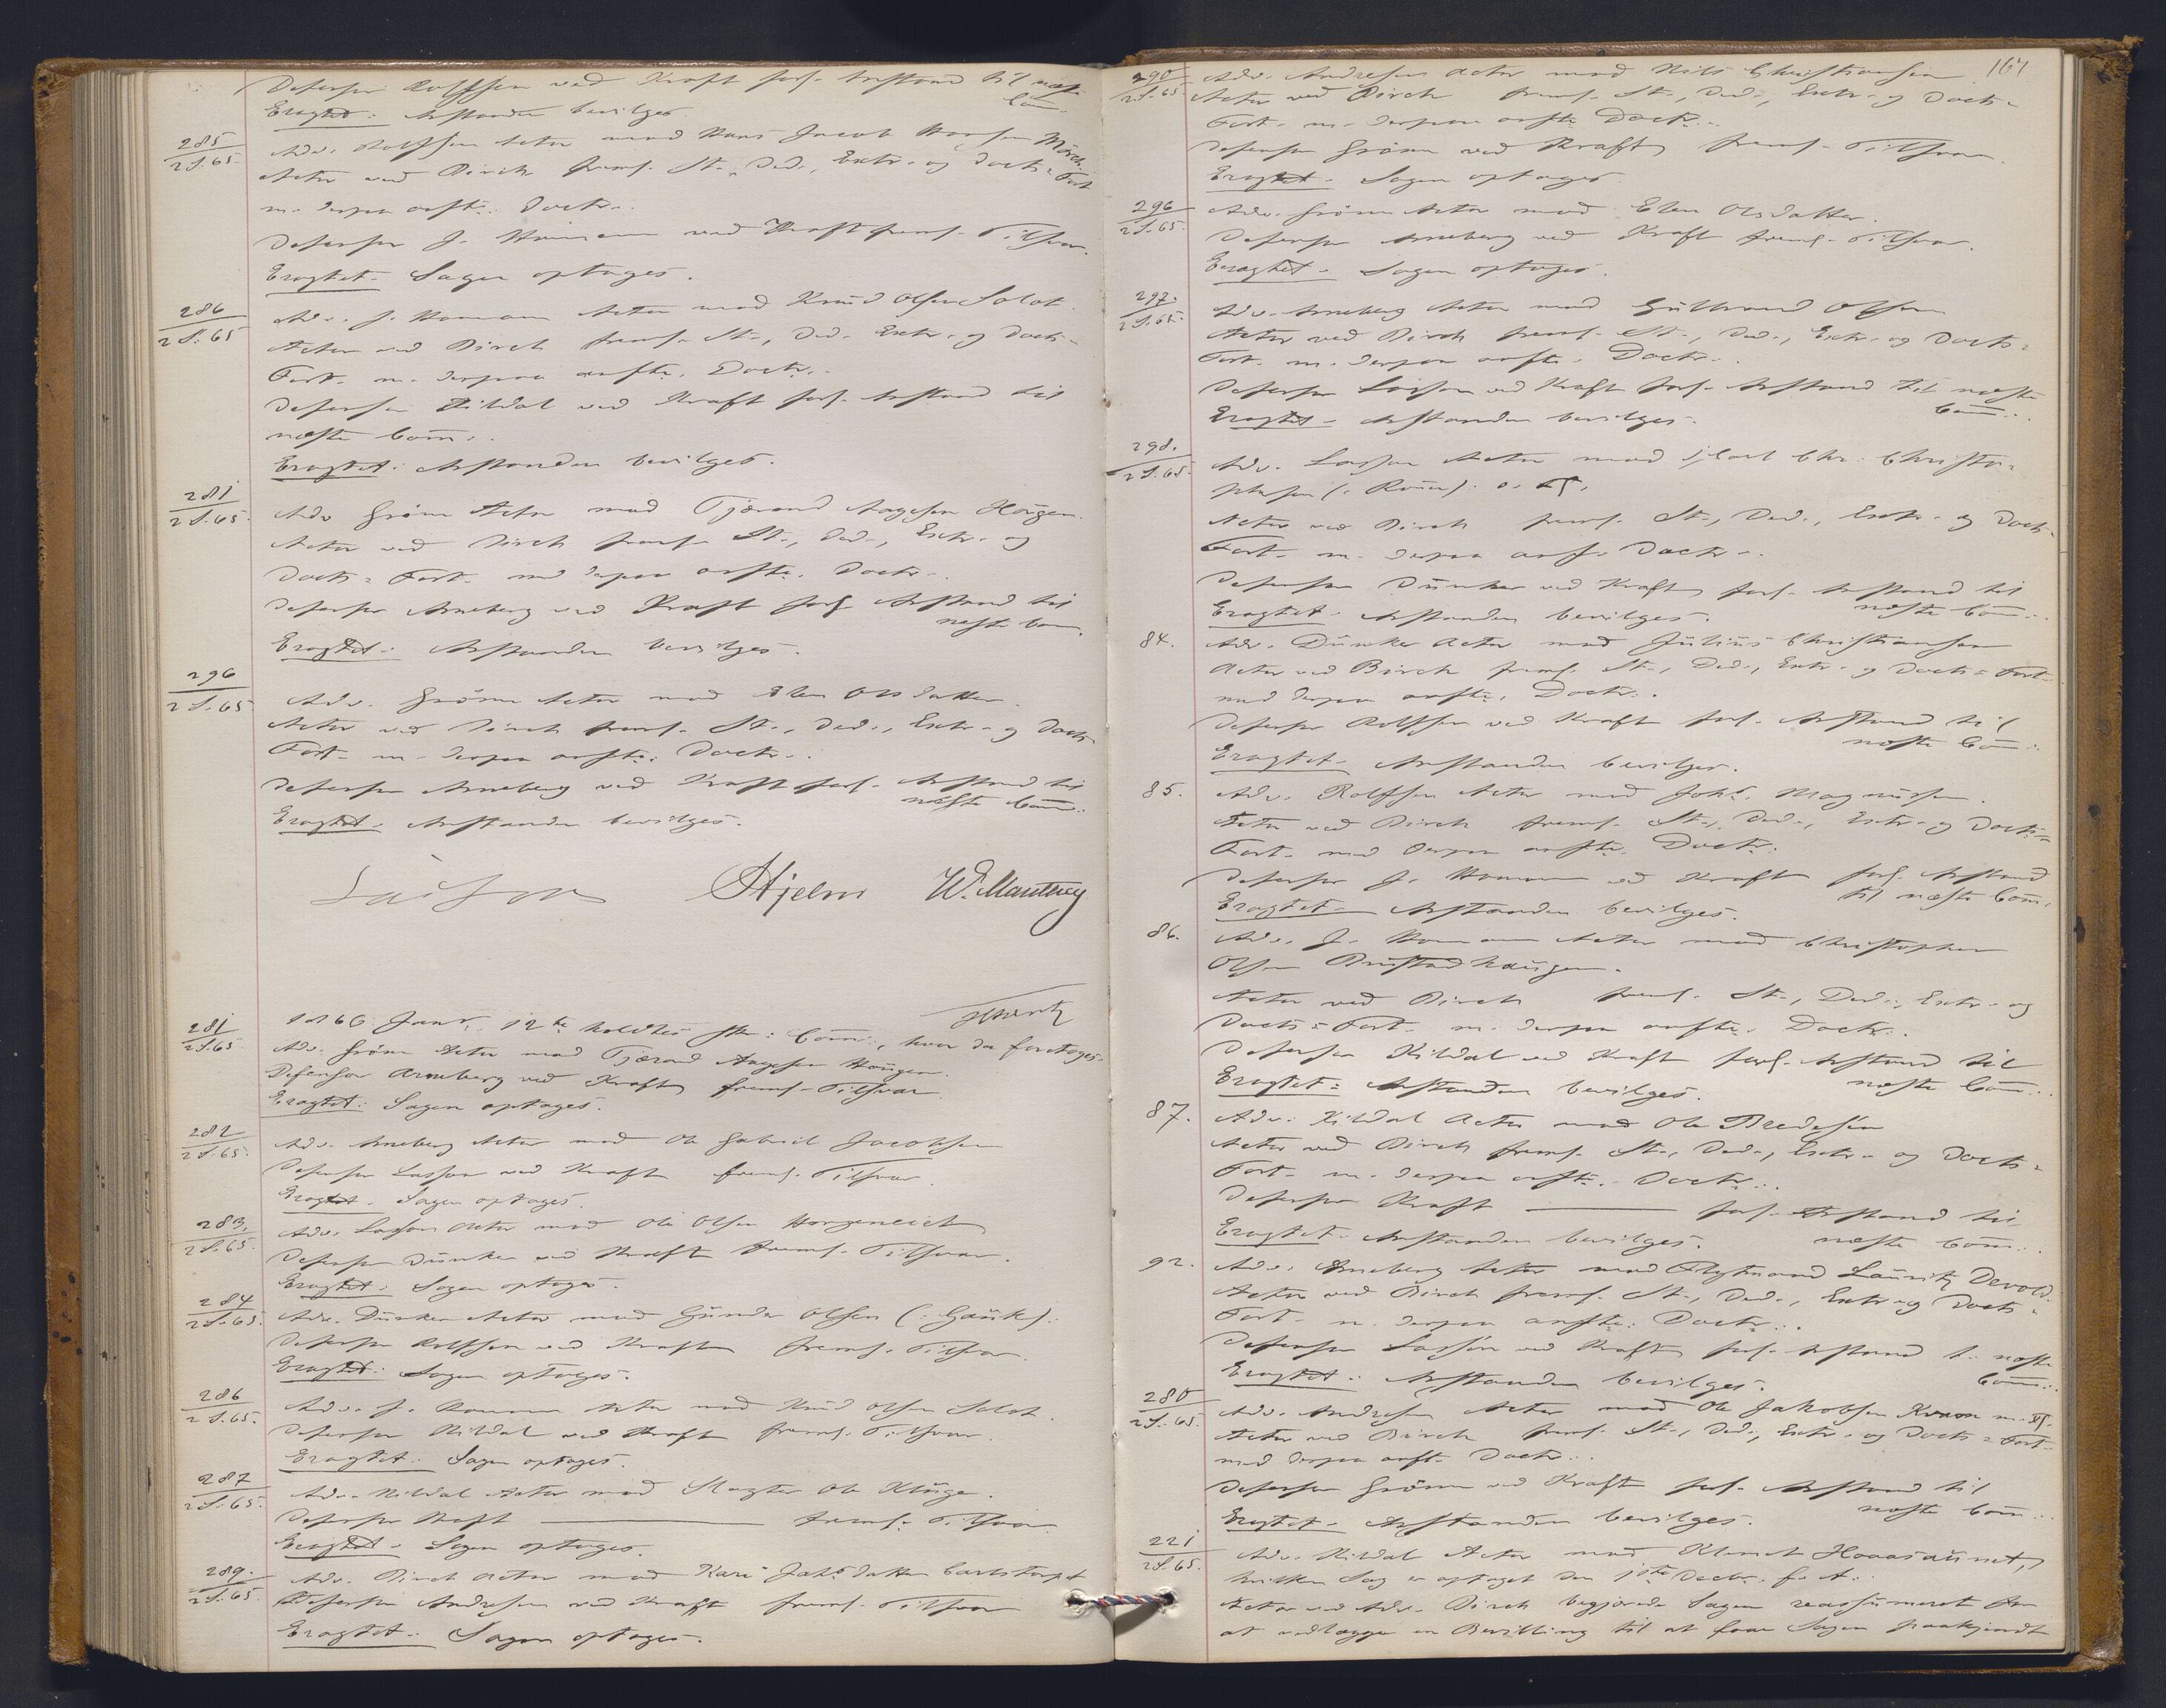 Defensor Rolffsen ved Kraft forl. Anstand til næste
Com.
Eragtet: Anstanden bevilges.
285
2 S. 65
Adv. Rolffsen Actor mod Hans Jacob Hansen Mörch
Actor ved Birch freml. St., Ded., Extr. og Docts= Fort.
m. derpaa anfte. Doctr..
Defensor J. Homann ved Kraft freml. Tilsvar.
Eragtet. Sagen optages.
286
2 S. 65
Adv. J. Homann Actor mod Knud Olsen Solot
Actor ved Birch freml. St., Ded. Extr. og Docts=
Fort. m. derpaa anfte. Doctr..
Defensor Kildal ved Kraft forl. Anstand til
næste Com..
Eragtet: Anstanden bevilges.
281
2 S. 65
Adv Grönn Actor mod Tjærand Aagesen Hougen.
Actor ved Birch freml. St., Ded., Extr. og
Docts= Fort. med derpaa anfte. Doctr..
Defensor Arneberg ved Kraft forl. Anstand til
næste Com.
Eragtet: Anstanden bevilges.
296
2 S. 65
Adv. Grönn Actor mod Elen Olsdatter.
Actor ved Birch freml. St., Ded., Extr. og Docts
Fort. m. derpaa anfte. Doctr..
Defensor Arneberg ved Kraft forl. Anstand til
næste Com..
Eragtet. Anstanden bevilges.
Lasson Hjelm W. Manthey
281
2 S. 65
1866 Janr. 12te holdtes Com., hvor da foretoges.
Adv. Grönn Actor mod Tjærand Aagesen Hougen.
Defensor Arneberg ved Kraft freml. Tilsvar.
Eragtet: Sagen optages.
282
2 S. 65.
Adv. Arneberg Actor mod Ole Gabriel Jacobsen
Defensor Lasson ved Kraft freml. Tilsvar.
Eragtet. Sagen optages.
283.
2 S. 65.
Adv. Lasson Actor mod Ole Olsen
Defensor Dunker ved Kraft freml. Tilsvar.
Eragtet: Sagen optages.
284
2 S. 65.
Adv. Dunker Actor mod Gunder Olsen (: Gauk):
Defensor Rolffsen ved Kraft freml. Tilsvar
Eragtet: Sagen optages.
286
2 S. 65.
Adv. J. Homann Actor mod Knud Olsen Solot.
Defensor Kildal ved Kraft freml. Tilsvar.
Eragtet: Sagen optages.
287
2 S. 65.
Adv. Kildal Actor mod Slagter Ole Kluge.
Defensor Kraft freml. Tilsvar.
Eragtet. Sagen optages.
289.
2 S. 65.
Adv. Birch Actor mod Kari Jahsdatter
Defensor Andresen ved Kraft freml. Tilsvar
Eragtet: Sagen optages.
161
290
2 S. 65.
Adv. Andresen Actor mod Nils Christiansen
Actor ved Birch freml. St., Ded., Extr. og Docts=
Fort. m. derpaa anfte Doctr..
Defensor Grönn ved Kraft freml. Tilsvar.
Eragtet. Sagen optages.
296
2 S. 65.
Adv. Grönn Actor mod Elen Olsdatter.
Defensor Arneberg ved Kraft freml. Tilsvar.
Eragtet. Sagen optages.
297.
2 S. 65.
Adv. Arneberg Actor mod Gulbrand Olsen
Actor ved Birch freml. St., Ded., Extr. og Docts=
Fort. m. derpaa anfte. Doctr..
Defensor Lasson ved Kraft forl. Anstand til næste
Com..
Eragtet. Anstanden bevilges.
298.
2 S. 65
Adv. Lasson Actor mod Carl Chr. Christo=
phersen
Actor ved Birch freml. St., Ded., Extr. og Docts=
Fort. m. derpaa anf. Doctr..
Defensor Dunker ved Kraft forl. Anstand til
næste Com..
Eragtet. Anstanden bevilges.
84.
Adv. Dunker Actor mod Julius Christiansen
Actor ved Birch freml. St., Ded., Extr. og Docts= Fort.
med derpaa anfte. Doctr.
Defensor Rolffsen ved Kraft forl. Anstand til
næste Com..
Eragtet. Anstanden bevilges.
85.
Adv. Rolffsen Actor mod Johs. Magnussen.
Actor ved Birch freml. St., Ded., Extr. og Docts=
Fort. med derpaa anfte. Doctr.
Defensor J. Homann ved Kraft forl. Anstand
til næste Com.
Eragtet. Anstanden bevilges.
86.
Adv. J. Homann Actor mod Christopher
Olsen
Actor ved Birch freml. St., Ded., Extr. og
Docts= Fort. m. derpaa anfte. Doctr..
Defensor Kildal ved Kraft forl. Anstand til
næste Com..
Eragtet: Anstanden bevilges.
87.
Adv. Kildal Actor mod Ole Bredesen
Actor ved Birch freml. St., Ded., Extr. og Docts=
Fort. m. derpaa anfte. Doctr..
Defensor Kraft forl. Anstand til
næste Com..
Eragtet. Anstanden bevilges.
92.
Adv. Arneberg Actor mod Flytmand Lauritz Devold.
Actor ved Birch freml. St., Ded., Extr. og Docts=
Fort. m. derpaa anfte. Doctr..
Defensor Lasson ved Kraft forl. Anstand t. næste
Com..
Eragtet: Anstanden bevilges.
280
2 S. 65.
Adv. Andresen Actor mod Ole Jakobsen Kvam m. fl.
Actor ved Birch freml. St., Ded., Extr. og Docts= Fort.
med derpaa anft. Doctr..
Defensor Grönn ved Kraft forl. Anstand til
næste Com..
Eragtet. Anstanden bevilges.
221
2 S. 65.
Adv. Kildal Actor mod Klemet Hovasaunet,
hvilken Sag er optaget den Decbr. f. A.
Actor ved Adv. Birch begjærede Sagen reassumeret for
at vedlægge en Bevilling til at faae Sagen paakjendt